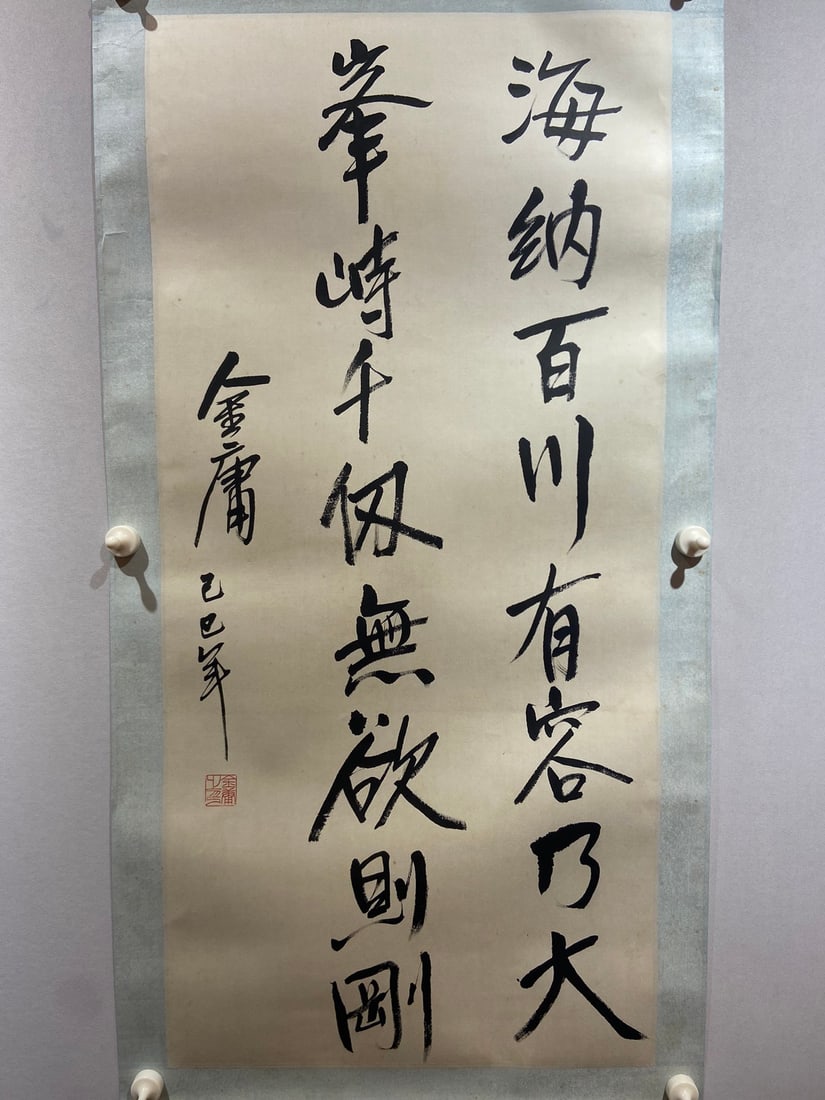 海納百川有容乃大
峯峙千仞無欲則剛
金庸
己巳年
金庸之印